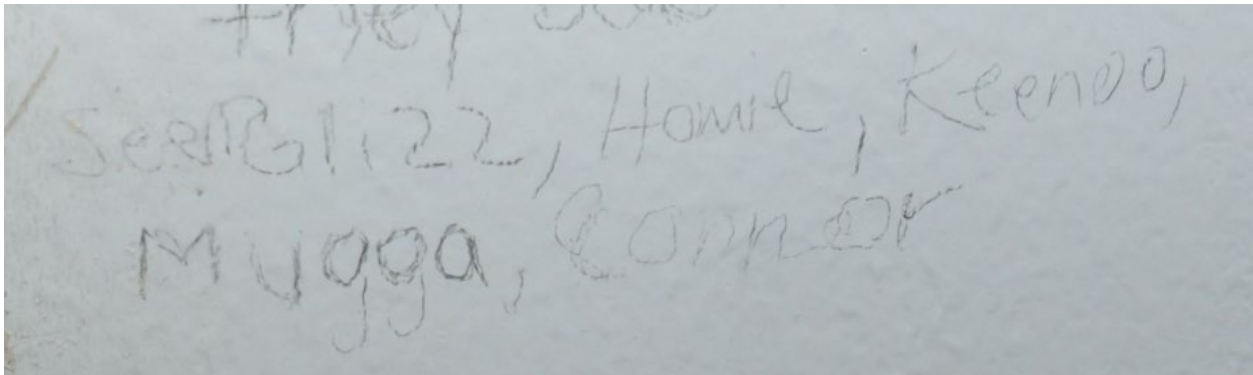 they
SeenGlizz, Homie, Keenoo,
Mugga, Connor